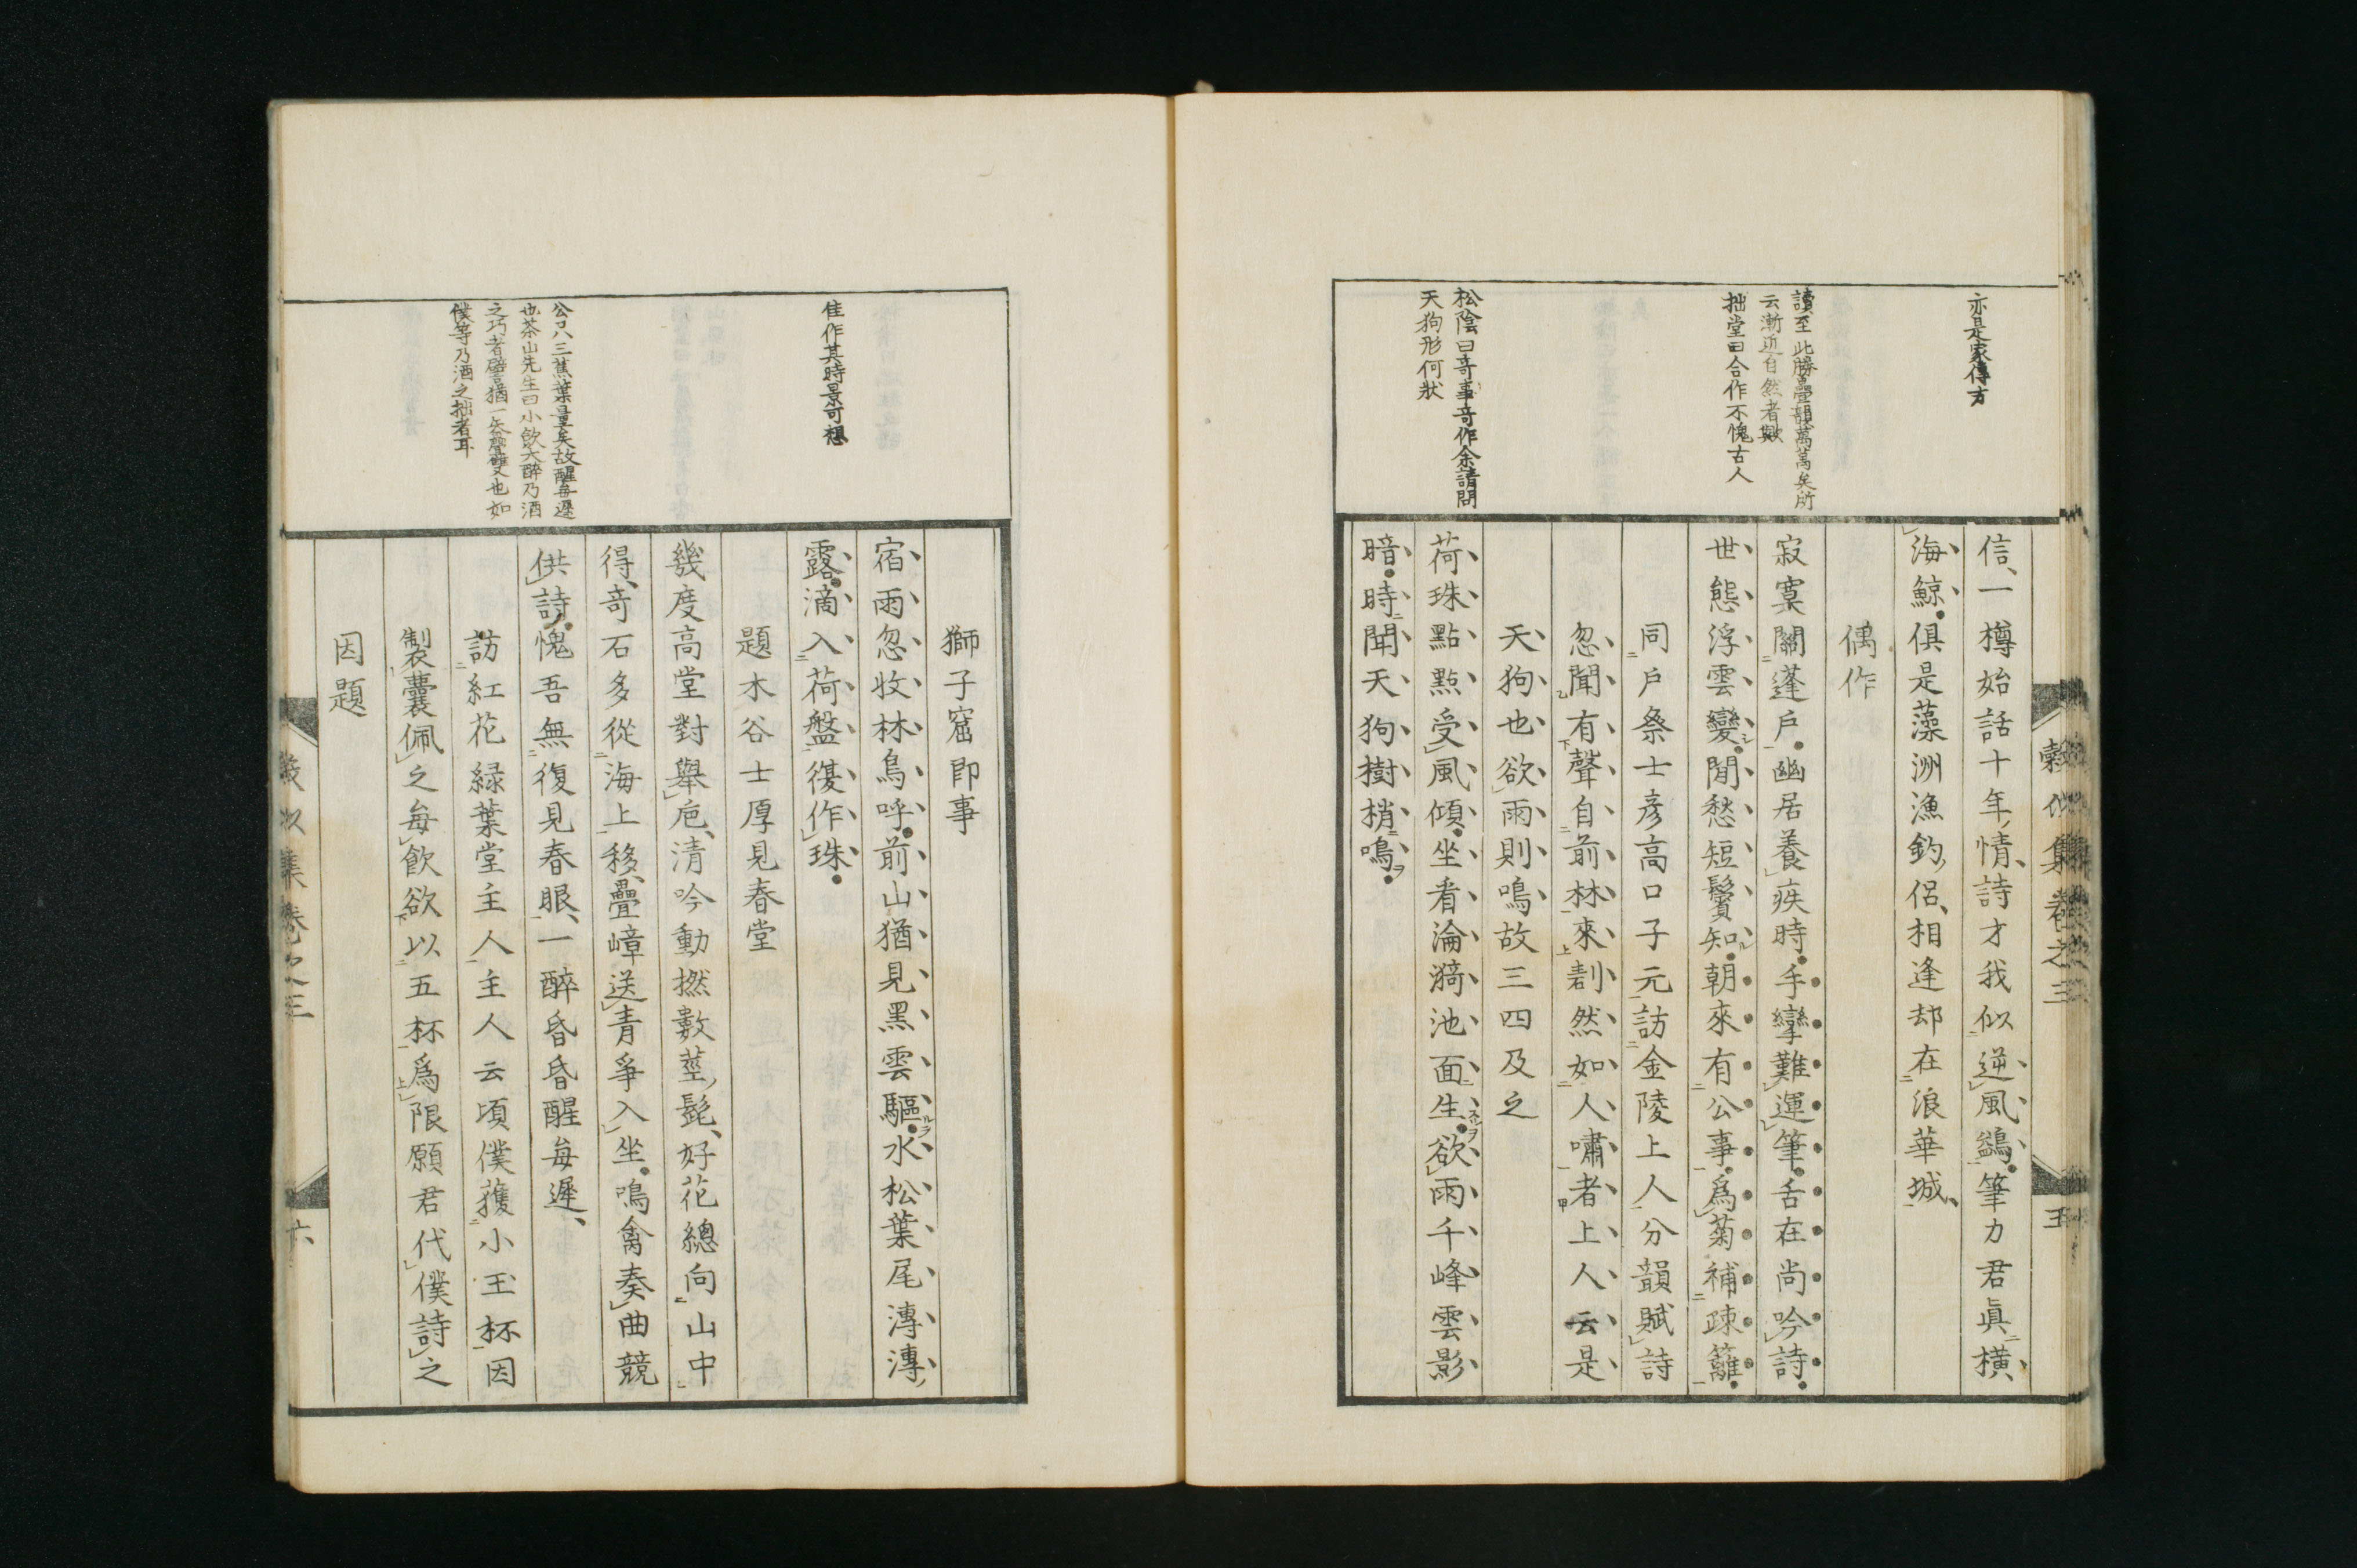 亦是家傳方
讀至此勝疊韻萬萬矣所
云漸近自然者歟
拙堂曰合作不愧古人
松陰曰奇事奇作余請問
天狗形何狀
穀似集卷之三
五
信一樽始話十年情詩才我似逆風鷁筆力君眞橫
海鯨俱是藻洲漁釣侶相逢却在浪華城
偶作
寂寞關蓬戶幽居養疾時手攣難運筆舌在尚吟詩
世態浮雲變閒愁短鬢知朝來有公事爲菊補疎籬
同戶祭士彥高口子元訪金陵上人分韻賦詩
忽聞有聲自前林來劃然如人嘯者上人云是
天狗也欲雨則鳴故三四及之
荷珠點點受風傾坐看淪漪池面生欲雨千峰雲影
暗時聞天狗樹梢鳴
佳作其時景可想
公只八三蕉葉量矣故醒每遲
也茶山先生曰小飲大醉乃酒
之巧者譬猶一矢雙也如
僕等乃酒之拙者耳
獅子窟卽事
宿雨忽收林鳥呼前山猶見黑雲驅水松葉尾漙漙
露滴入荷盤復作珠
題木谷士厚見春堂
幾度高堂對舉巵清吟動撚數莖髭好花總向山中
得奇石多從海上移疊嶂送青爭入坐鳴禽奏曲競
供詩愧吾無復見春眼一醉昏昏醒每遲
訪紅花緑葉堂主人主人云頃僕獲小玉杯因
製囊佩之每飲欲以五杯爲限願君代僕詩之
因題
穀似集卷之三
六